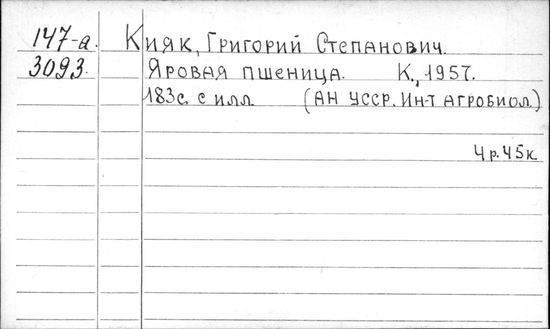 147-а. Кияк, Григорий Степанович.
3093. Яровая пшеница. К., 1957.
183с. с илл (АН УССР. Ин-т агробиол.)
4р.45к.